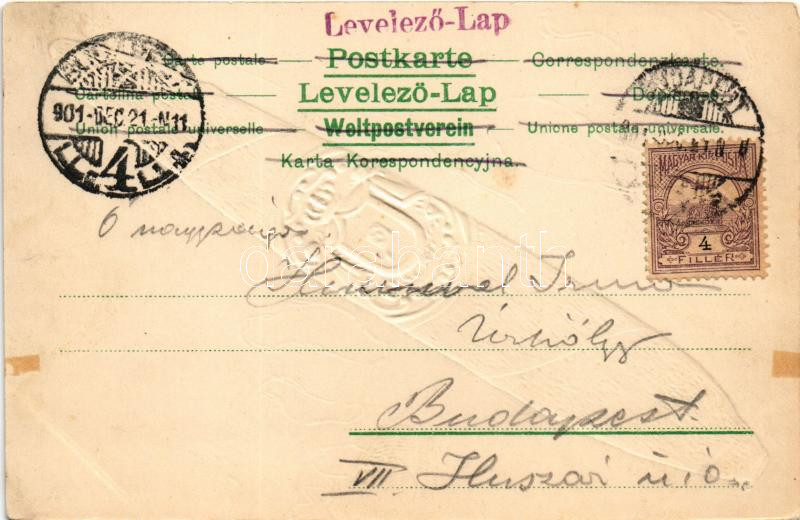 Levelező-Lap
Carte postale Postkarte Correspondenzkarte.
Cartolina postale Levelező-Lap
Union postale universelle Weltpostverein Unione postale universale.
Karta Korespondencyjna.
901-DEC.21.-N11
4
BUDAPEST
MAGYAR KIR. POSTA
4
FILLÉR
Ő nagysága
Irma
Úrhölgy
Budapest
VII Huszár